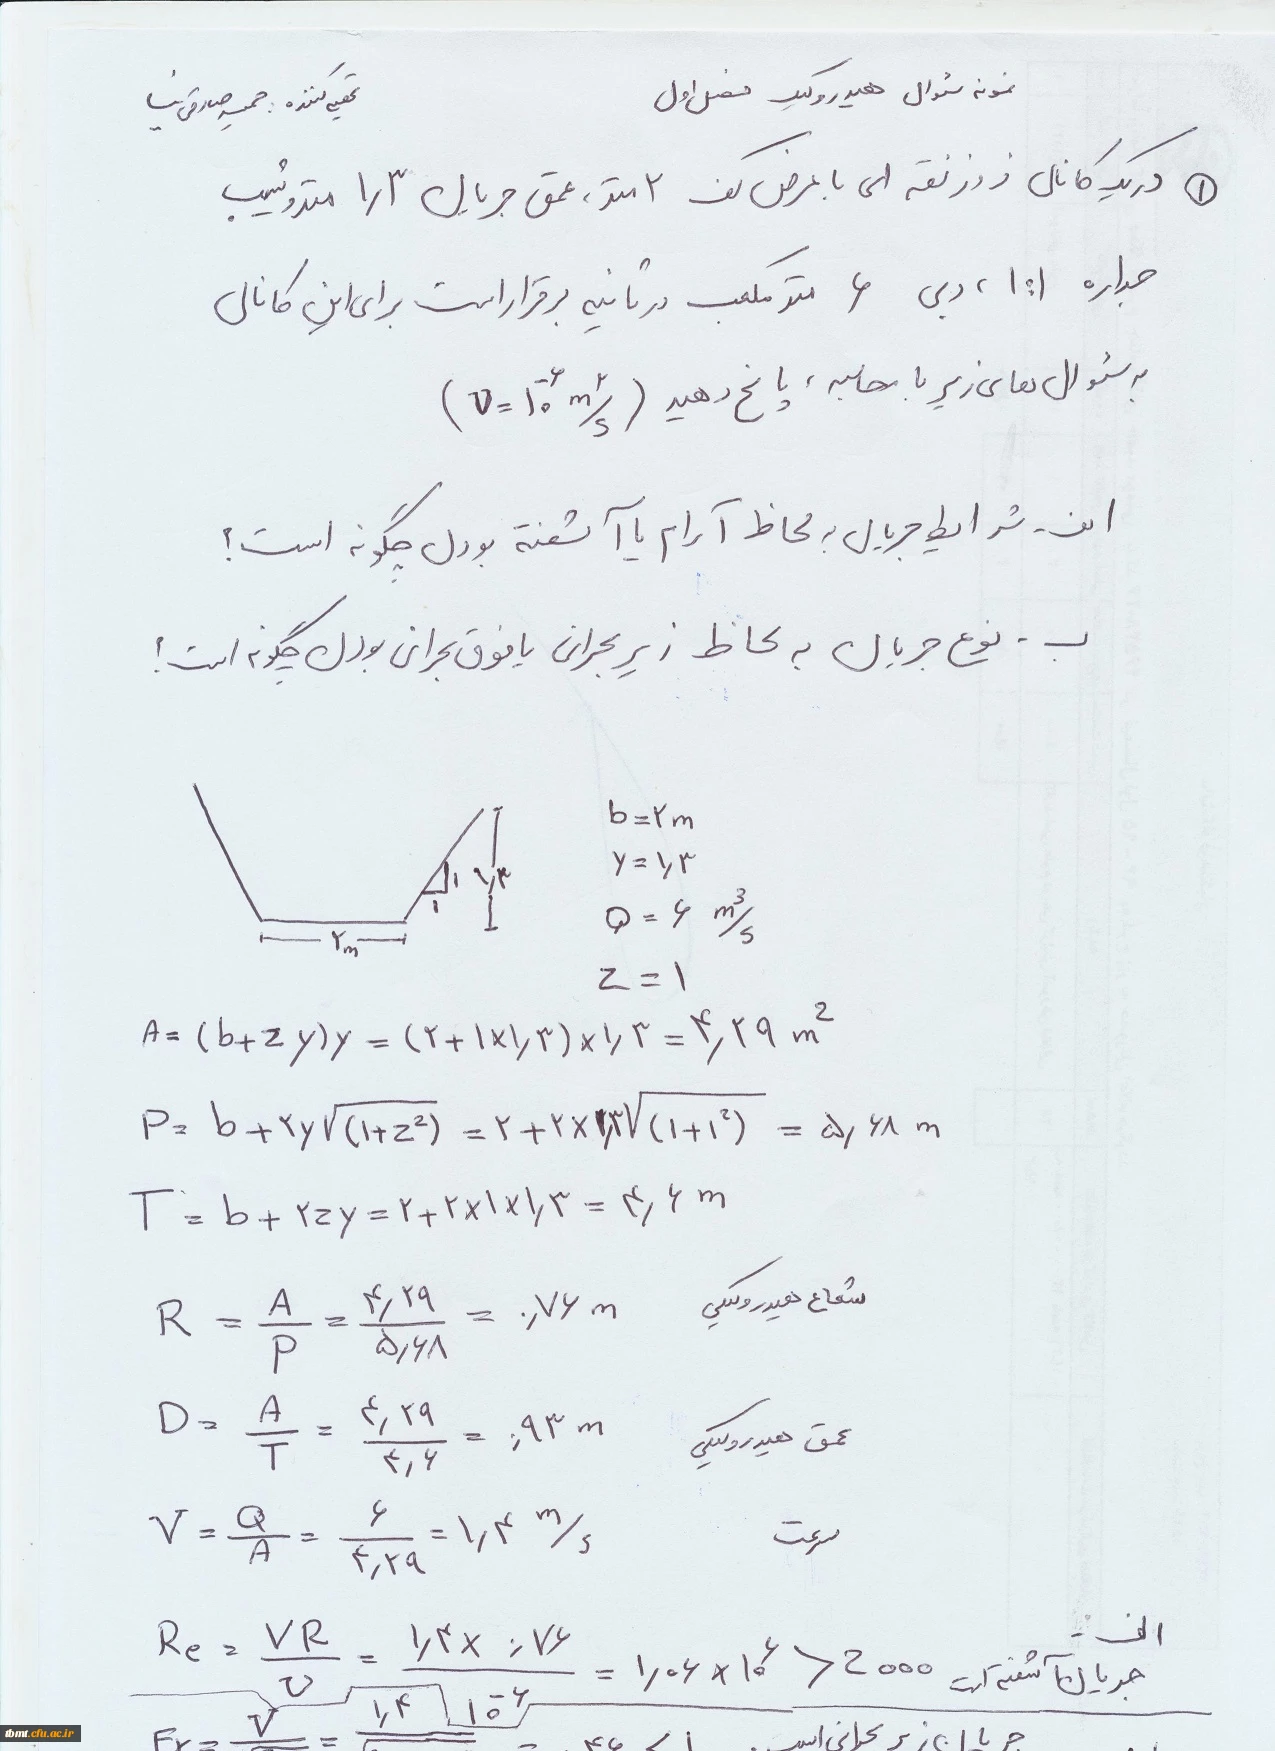 نمونه سئوال هیدرولیک فصل اول
تهیه کننده : حمید صادقی نیا
① در یک کانال ذوزنقه ای با عرض کف ۲ متر، عمق جریان ۱٫۳ متر و شیب
جداره ۱:۱ ، دبی ۶ متر مکعب در ثانیه برقرار است برای این کانال
به سئوال های زیر با محاسبه ، پاسخ دهید (ν = ۱۰⁻⁶ m²/s)
الف - شرایط جریان به لحاظ آرام یا آشفته بودن چگونه است؟
ب - نوع جریان به لحاظ زیر بحرانی یا فوق بحرانی بودن چگونه است؟
b = ۲ m
y = ۱٫۳
Q = ۶ m³/s
z = ۱
۱ ۱ ۱٫۳
۲ m
A = (b + zy)y = (۲ + ۱ × ۱٫۳) × ۱٫۳ = ۴٫۲۹ m²
P = b + ۲y√(1+z²) = ۲ + ۲ × ۱٫۳√(1+1²) = ۵٫۶۸ m
T = b + ۲zy = ۲ + ۲ × ۱ × ۱٫۳ = ۴٫۶ m
R = A/P = ۴٫۲۹/۵٫۶۸ = ۰٫۷۶ m شعاع هیدرولیکی
D = A/T = ۴٫۲۹/۴٫۶ = ۰٫۹۳ m عمق هیدرولیکی
V = Q/A = ۶/۴٫۲۹ = ۱٫۴ m/s سرعت
الف -
Re = VR/ν = ۱٫۴ × ۰٫۷۶/۱۰⁻⁶ = ۱٫۰۶ × ۱۰⁶ > 2000 جریان آشفته است
Fr = V = ۱٫۴ = جریان زیر بحرانی است
tbmt.cfu.ac.ir